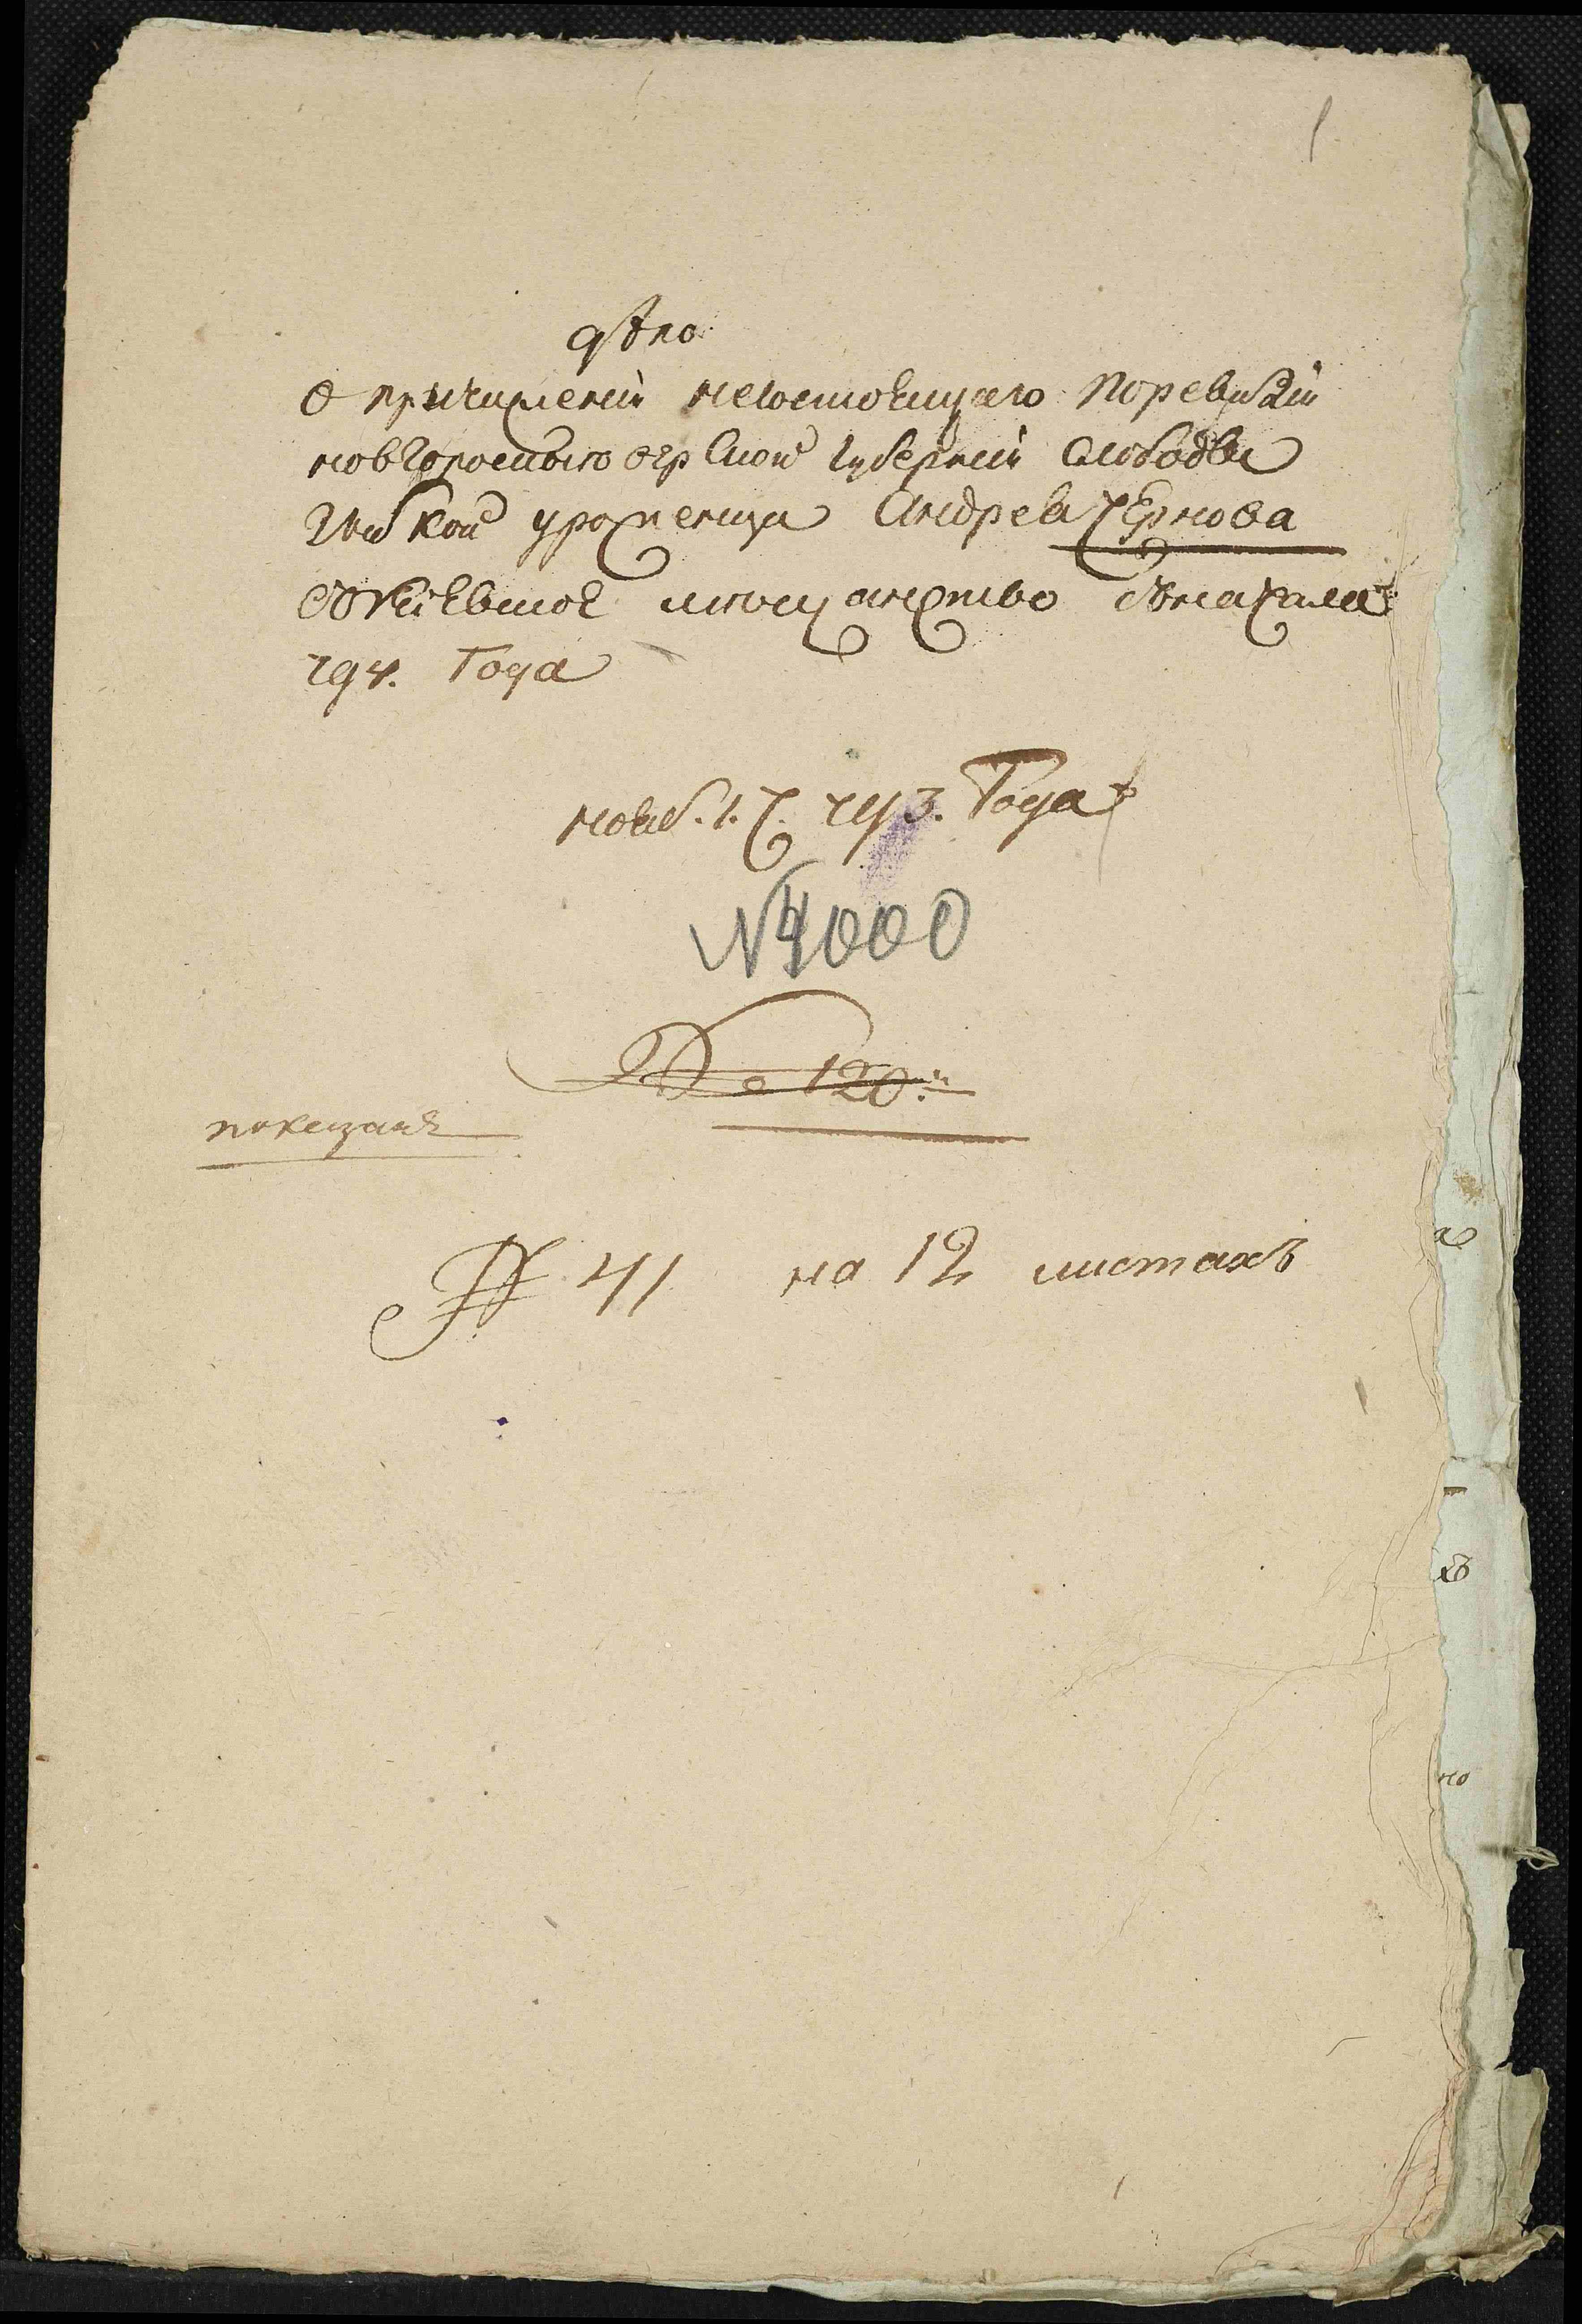 1
дѣло
О причислении несостоящаго поревизии
новгородъ сѣверской губернии слободы
кой уроженца Андрея Чернова
въ киевское мещанство сначала
794. Года
нояб. 1. ч. 793. Года
№ 4000
№ 120.
показанъ
№ 41 на 12 листахъ